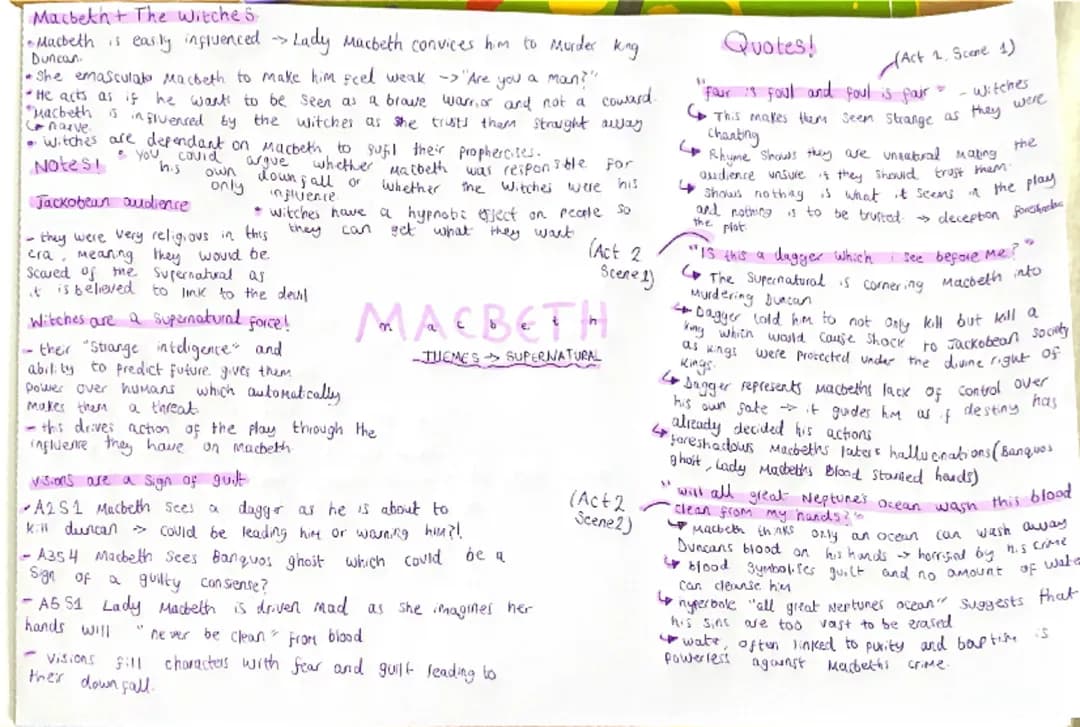 Macbeth + The Witches
• Macbeth is easily influenced → Lady Macbeth convices him to Murder King
Duncan.
• She emasculats Macbeth to make him feel weak → "Are you a Man?"
• He acts as if he wants to be seen as a brave warrior and not a coward.
• Macbeth is influenced by the witches as she trusts them straight away
↳ naive.
• witches are dependant on Macbeth to fufil their prophercites.
Notes!
• You could argue whether Macbeth was responsible for
his own downfall or whether the witches were his
only influence.
• witches have a hypnotic effect on people so
they can get what they want
Jackobean audience
- they were very religious in this
era, meaning they would be
scared of the supernatural as
it is believed to link to the devil
Witches are a supernatural force!
- their "strange intelligence" and
ability to predict future gives them
power over humans which automatically
makes them a threat.
- this drives action of the play through the
influence they have on Macbeth
visions are a sign of guilt
- A2S1 Macbeth sees a dagger as he is about to
kill duncan → could be leading him or warning him?!
- A3S4 Macbeth sees Banquos ghost which could be a
sign of a guilty consense?
- A5S1 Lady Macbeth is driven mad as she imagines her
hands will "never be clean" from blood
- visions fill characters with fear and guilt leading to
their downfall.
MACBETH
m a c b e t h
- THEMES → SUPERNATURAL
Quotes!
(Act 1, Scene 1)
"fair is foul and foul is fair" - witches
↳ This makes them seem strange as they were
chanting
↳ Rhyme shows they are unnatural making the
audience unsure if they should trust them.
↳ shows nothing is what it seems in the play
and nothing is to be trusted. → deception foreshadows
the plot
(Act 2
Scene 1)
"Is this a dagger which i see before me?"
↳ The supernatural is cornering Macbeth into
murdering Duncan
↳ Dagger told him to not only kill but kill a
king which would cause shock to Jackobean society
as kings were protected under the divine right of
kings.
↳ Dagger represents Macbeths lack of control over
his own fate → it guides him as if destiny has
already decided his actions
↳ foreshadows Macbeths later hallucinations (Banquos
ghost, Lady Macbeths Blood stained hands)
(Act 2
Scene 2)
"will all great Neptune's ocean wash this blood
clean from my hands?"
↳ Macbeth thinks only an ocean can wash away
Duncans blood on his hands → horrified by his crime
↳ blood symbolises guilt and no amount of water
can cleanse him
↳ hyperbole "all great Neptunes ocean" suggests that
his sins are too vast to be erased
↳ water, often linked to purity and baptism is
powerless against Macbeths crime.